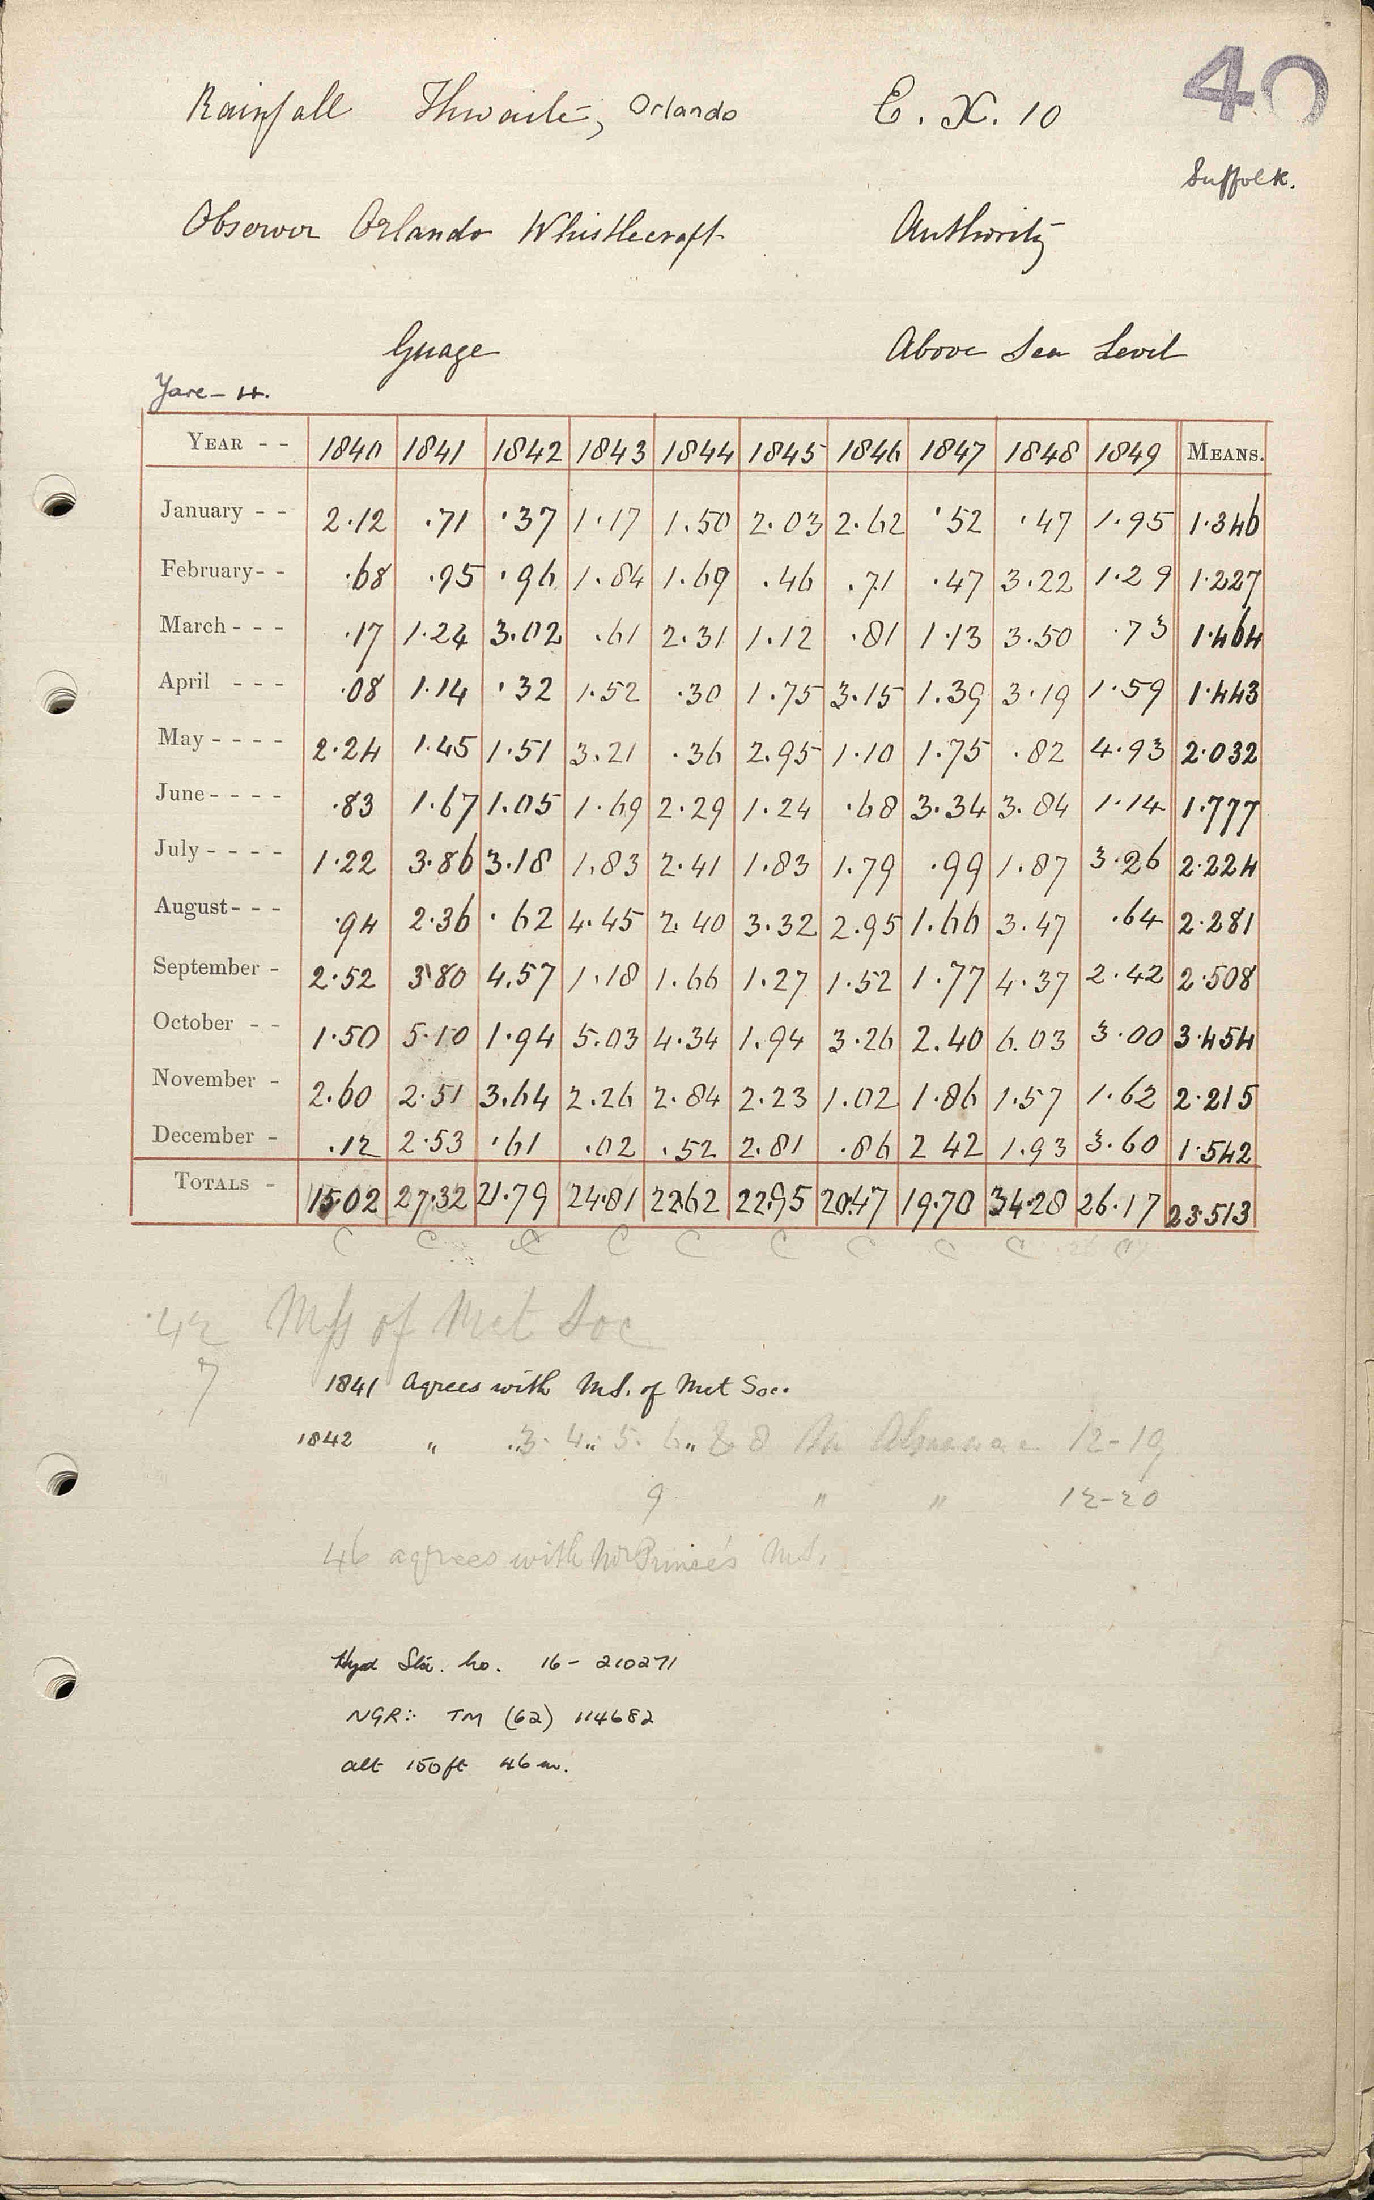 40
Rainfall Thwaite, Orlando E. X. 10
Suffolk.
Observer Orlando Whistlecraft Authority
Guage Above Sea Level
Yare - 4.
YEAR - - 1840 1841 1842 1843 1844 1845 1846 1847 1848 1849 MEANS.
January - - 2.12 .71 .37 1.17 1.50 2.03 2.62 .52 .47 1.95 1.346
February - - .68 .95 .96 1.84 1.69 .46 .71 .47 3.22 1.29 1.227
March - - - .17 1.24 3.02 .61 2.31 1.12 .81 1.13 3.50 .73 1.464
April - - - .08 1.14 .32 1.52 .30 1.75 3.15 1.39 3.19 1.59 1.443
May - - - - 2.24 1.45 1.51 3.21 .36 2.95 1.10 1.75 .82 4.93 2.032
June - - - - .83 1.67 1.05 1.69 2.29 1.24 .68 3.34 3.84 1.14 1.777
July - - - - 1.22 3.86 3.18 1.83 2.41 1.83 1.79 .99 1.87 3.26 2.224
August - - - .94 2.36 .62 4.45 2.40 3.32 2.95 1.66 3.47 .64 2.281
September - 2.52 3.80 4.57 1.18 1.66 1.27 1.52 1.77 4.37 2.42 2.508
October - - 1.50 5.10 1.94 5.03 4.34 1.94 3.26 2.40 6.03 3.00 3.454
November - 2.60 2.51 3.64 2.26 2.84 2.23 1.02 1.86 1.57 1.62 2.215
December - .12 2.53 .61 .02 .52 2.81 .86 2 42 1.93 3.60 1.542
TOTALS - 15.02 27.32 21.79 24.81 22.62 22.95 20.47 19.70 34.28 26.17 23.513
C C C C C C C C C C
.42 Mss of Met Soc
7
1841 agrees with MS. of Met Soc.
1842 " 3. 4. 5. 6. & 8 In Almanac 12-19
9 " " 12-20
46 agrees with Mr Prince's MS.
Hyd Sta. No. 16 - 210271
NGR:: TM (62) 114682
alt 150ft 46 m.